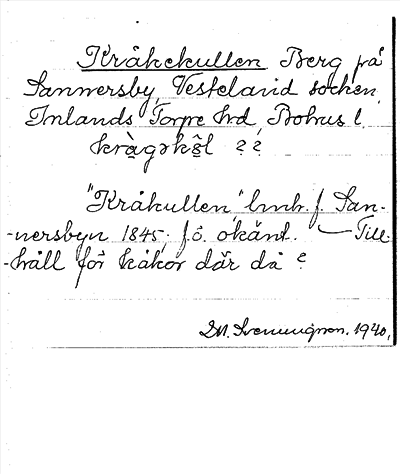 Kråkekullen Berg på
Sannersby, Vesteland socken,
Inlands Torpe hrd, Bohus l.
kràgəkö̀l ? ?
"Kråkullen", lmk. f. San-
-nersbyn 1845, f.ö. okänt. — Till-
-håll för kåkor där då ?
1940.